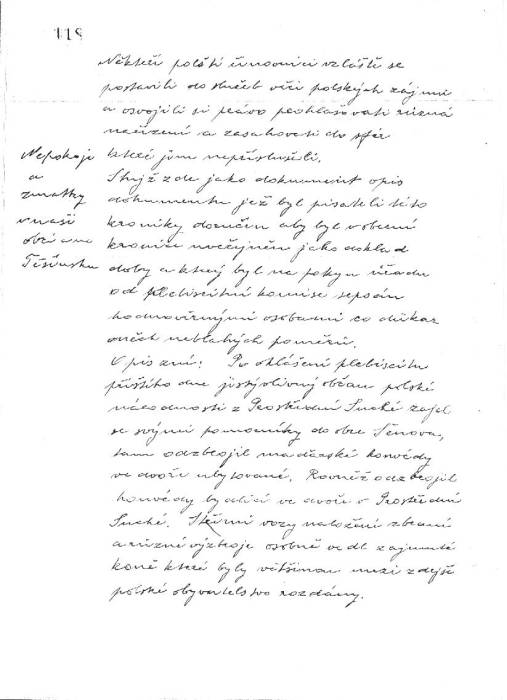 118
Někteří polští úředníci zvláště se
postavili do služeb věci polských zájmů
a osvojili si právo prohlašovati různá
nařízení a zasahovati do sfér
které jim nepříslušeli.
Nepokoje
a
zmatky
v naší
obci a na
Těšínsku
Stůjž zde jako dokument opis
dokumentu jež byl pisateli této
kroniky doručen aby byl v obecní
kronice uveřejněn jako doklad
doby a který byl na pokyn úřadu
od plebiscitní komise sepsán
hodnověrnými osobami co důkaz
oněch neblahých poměrů.
Opis zní: Po ohlášení plebiscitu
příštího dne jistý vlivný občan polské
národnosti z Prostřední Suché zajel
se svými pomocníky do obce Šenova,
tam odzbrojil maďarské honvédy
ve dvoře ubytované. Rovněž odzbrojil
honvédy bydlící ve dvoře v Prostřední
Suché. Štěrní vozy naložení zbraní
a různé výzbroje osobně vedl zajmuté
koně které byly většinou mezi zdejší
polské obyvatelstvo rozdány.